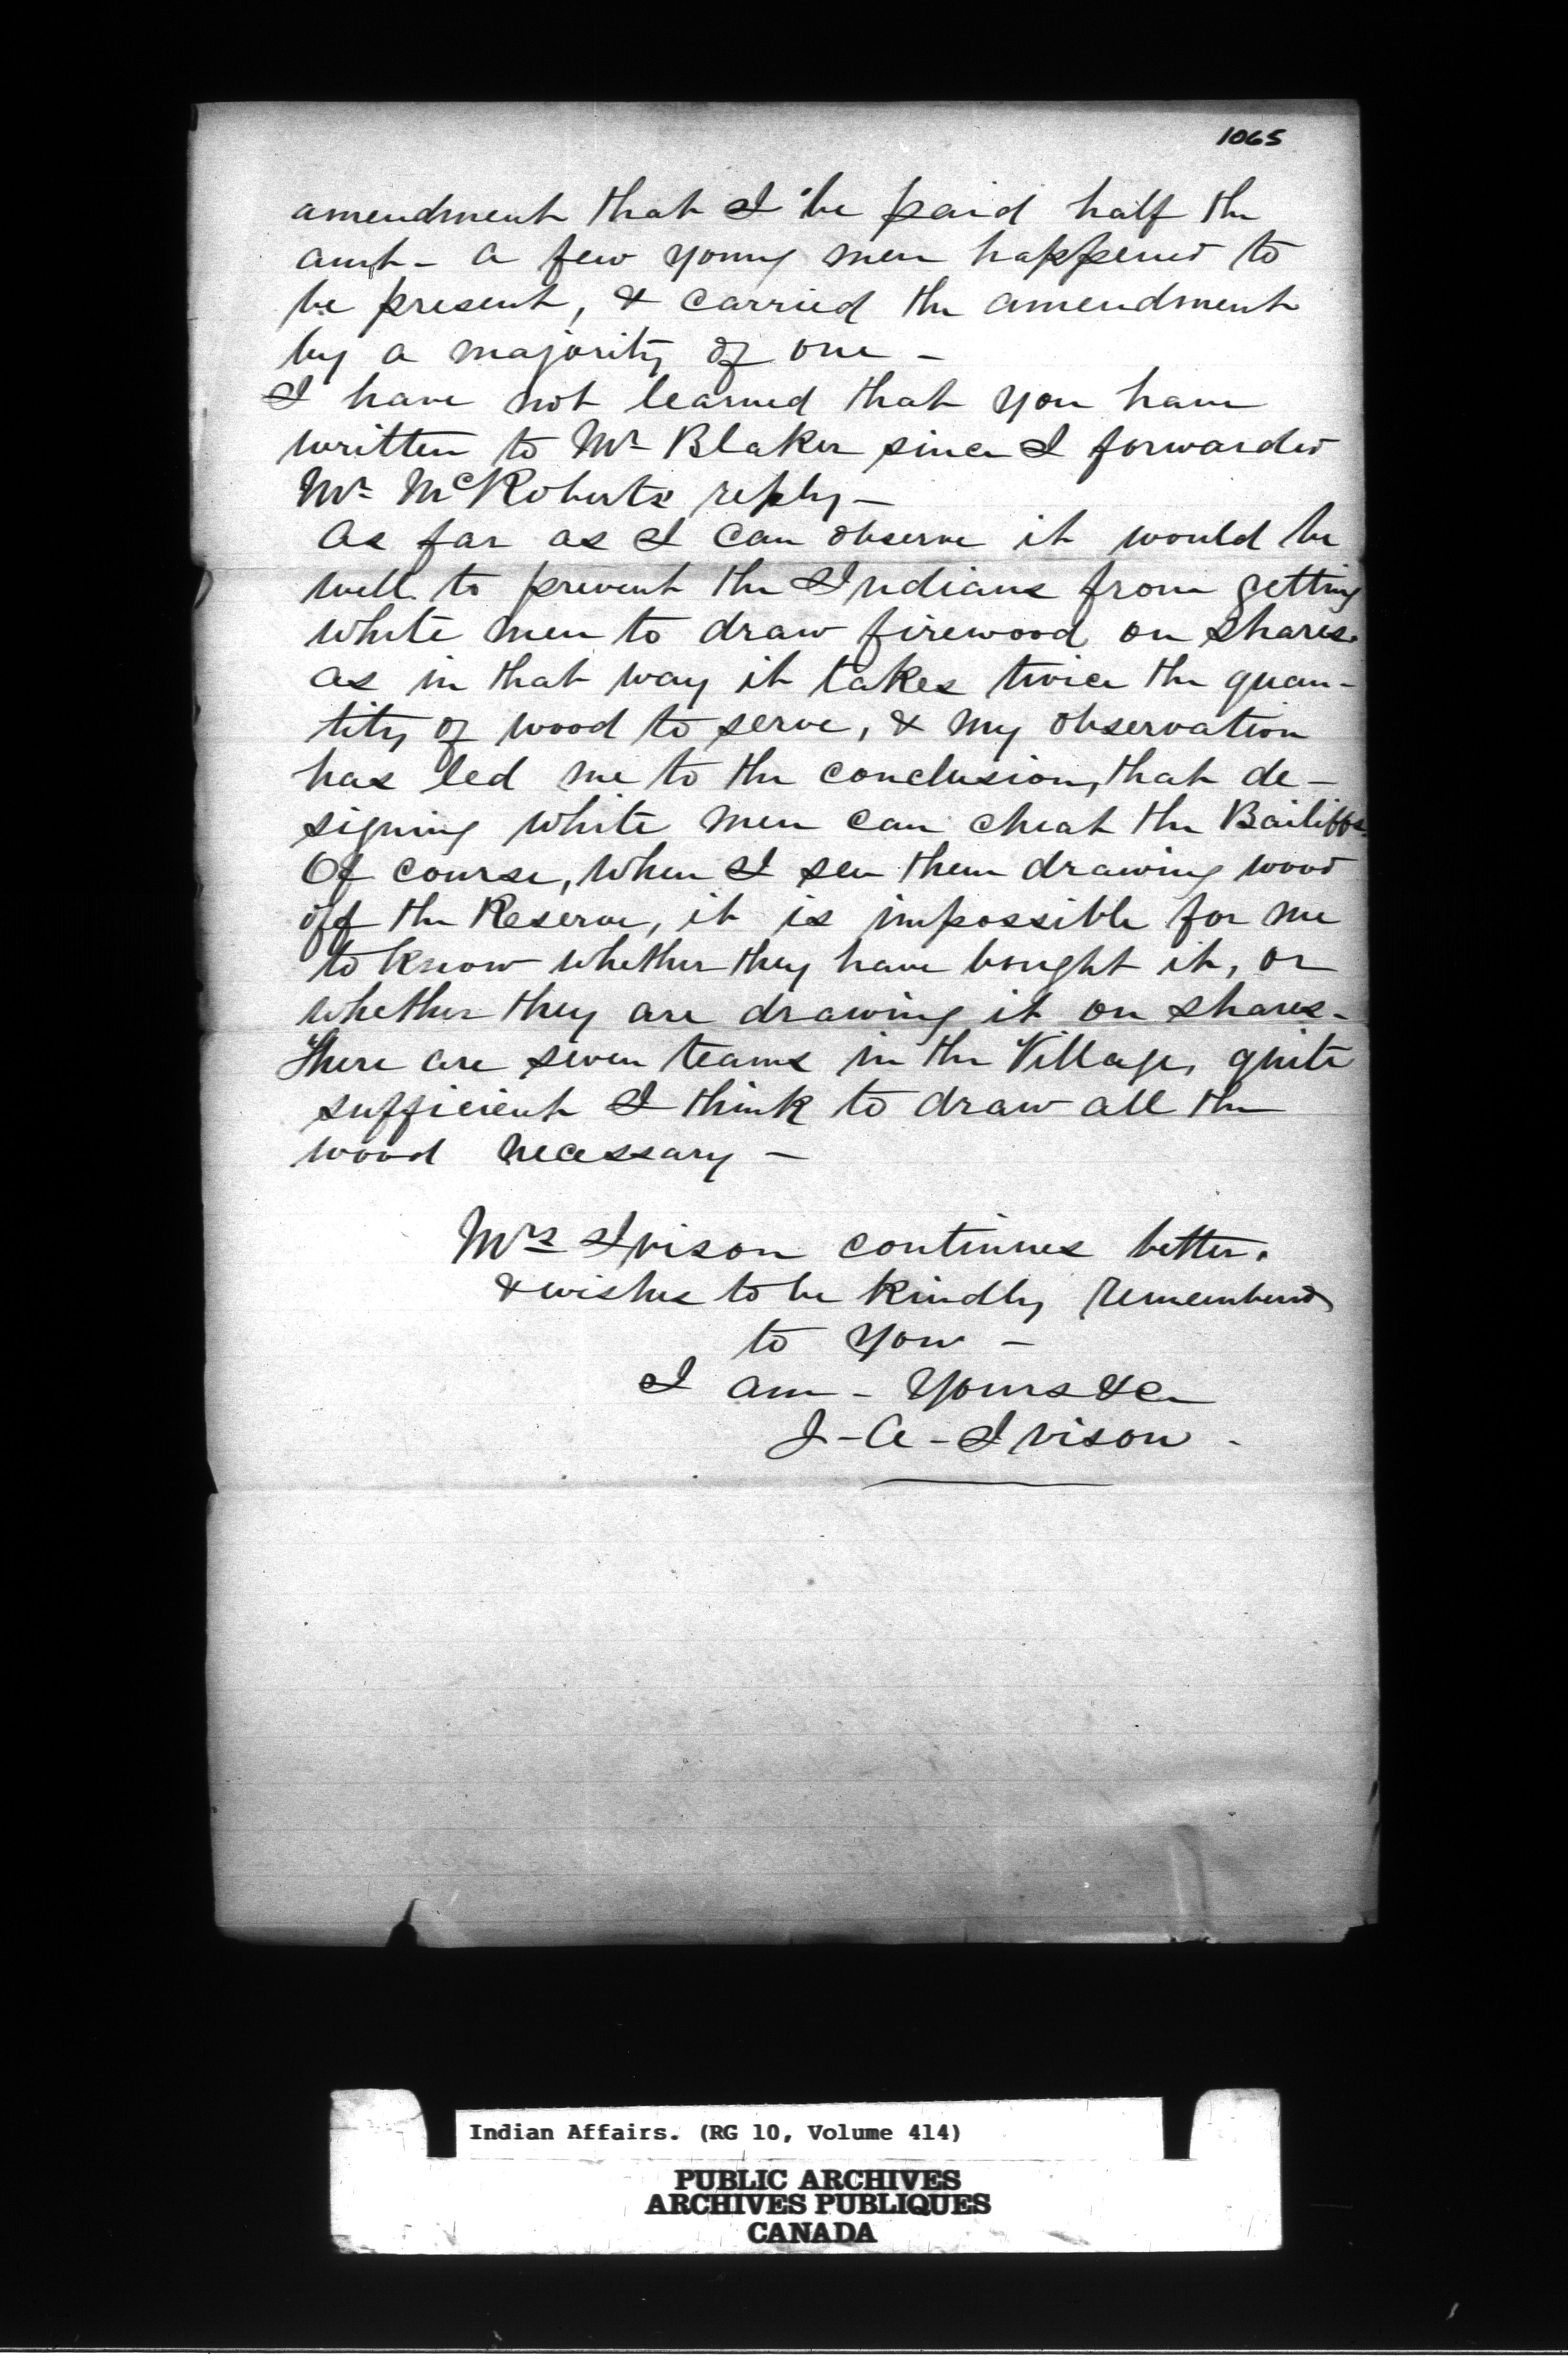 1065
amendment that I be paid half the
amt - a few young men happened to
be present, & carried the amendment
by a majority of one -
I have not learned that you have
written to Mr Blaker since I forwarded
Mr McRoberts reply -
As far as I can observe it would be
well to prevent the Indians from getting
white men to draw firewood on shares.
as in that way it takes twice the quan-
tity of wood to serve, & my observation
has led me to the conclusion, that de-
signing white men can cheat the Bailiffs.
Of course, when I see them drawing wood
off the Reserve, it is impossible for me
to know whether they have bought it, or
whether they are drawing it on shares -
There are seven teams in the Village, quite
sufficient I think to draw all the
wood necessary -
Mrs Ivison continues better.
& wishes to be kindly remembered
to you -
I am - Yours &c
J - A - Ivison -
Indian Affairs. (RG 10, Volume 414)
PUBLIC ARCHIVES
ARCHIVES PUBLIQUES
CANADA